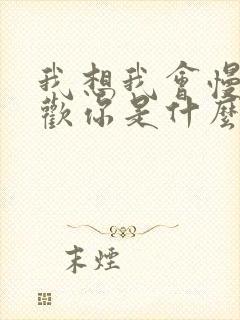 我想我會慢
歡你是什麼
末煙